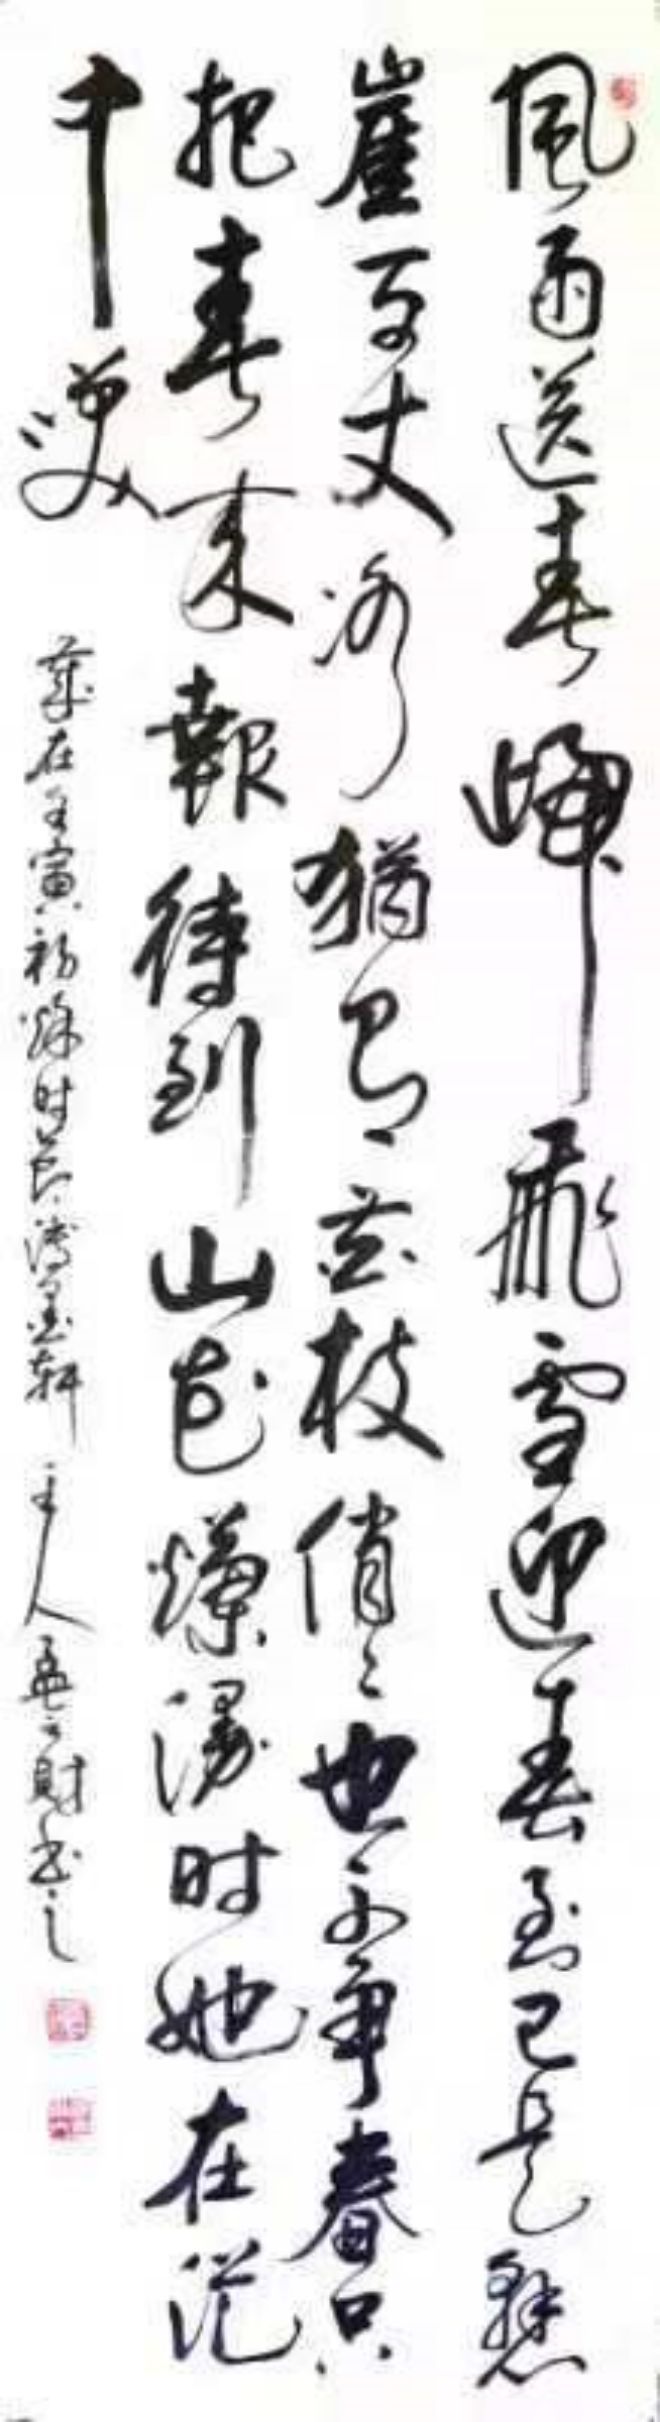 風雨送春歸飛雪迎春到已是懸
崖百丈冰猶有花枝俏〻也不争春只
把春来報待到山花爛漫时她在叢
中笑
歲在壬寅初秋时节 墨軒主人孟 財书之